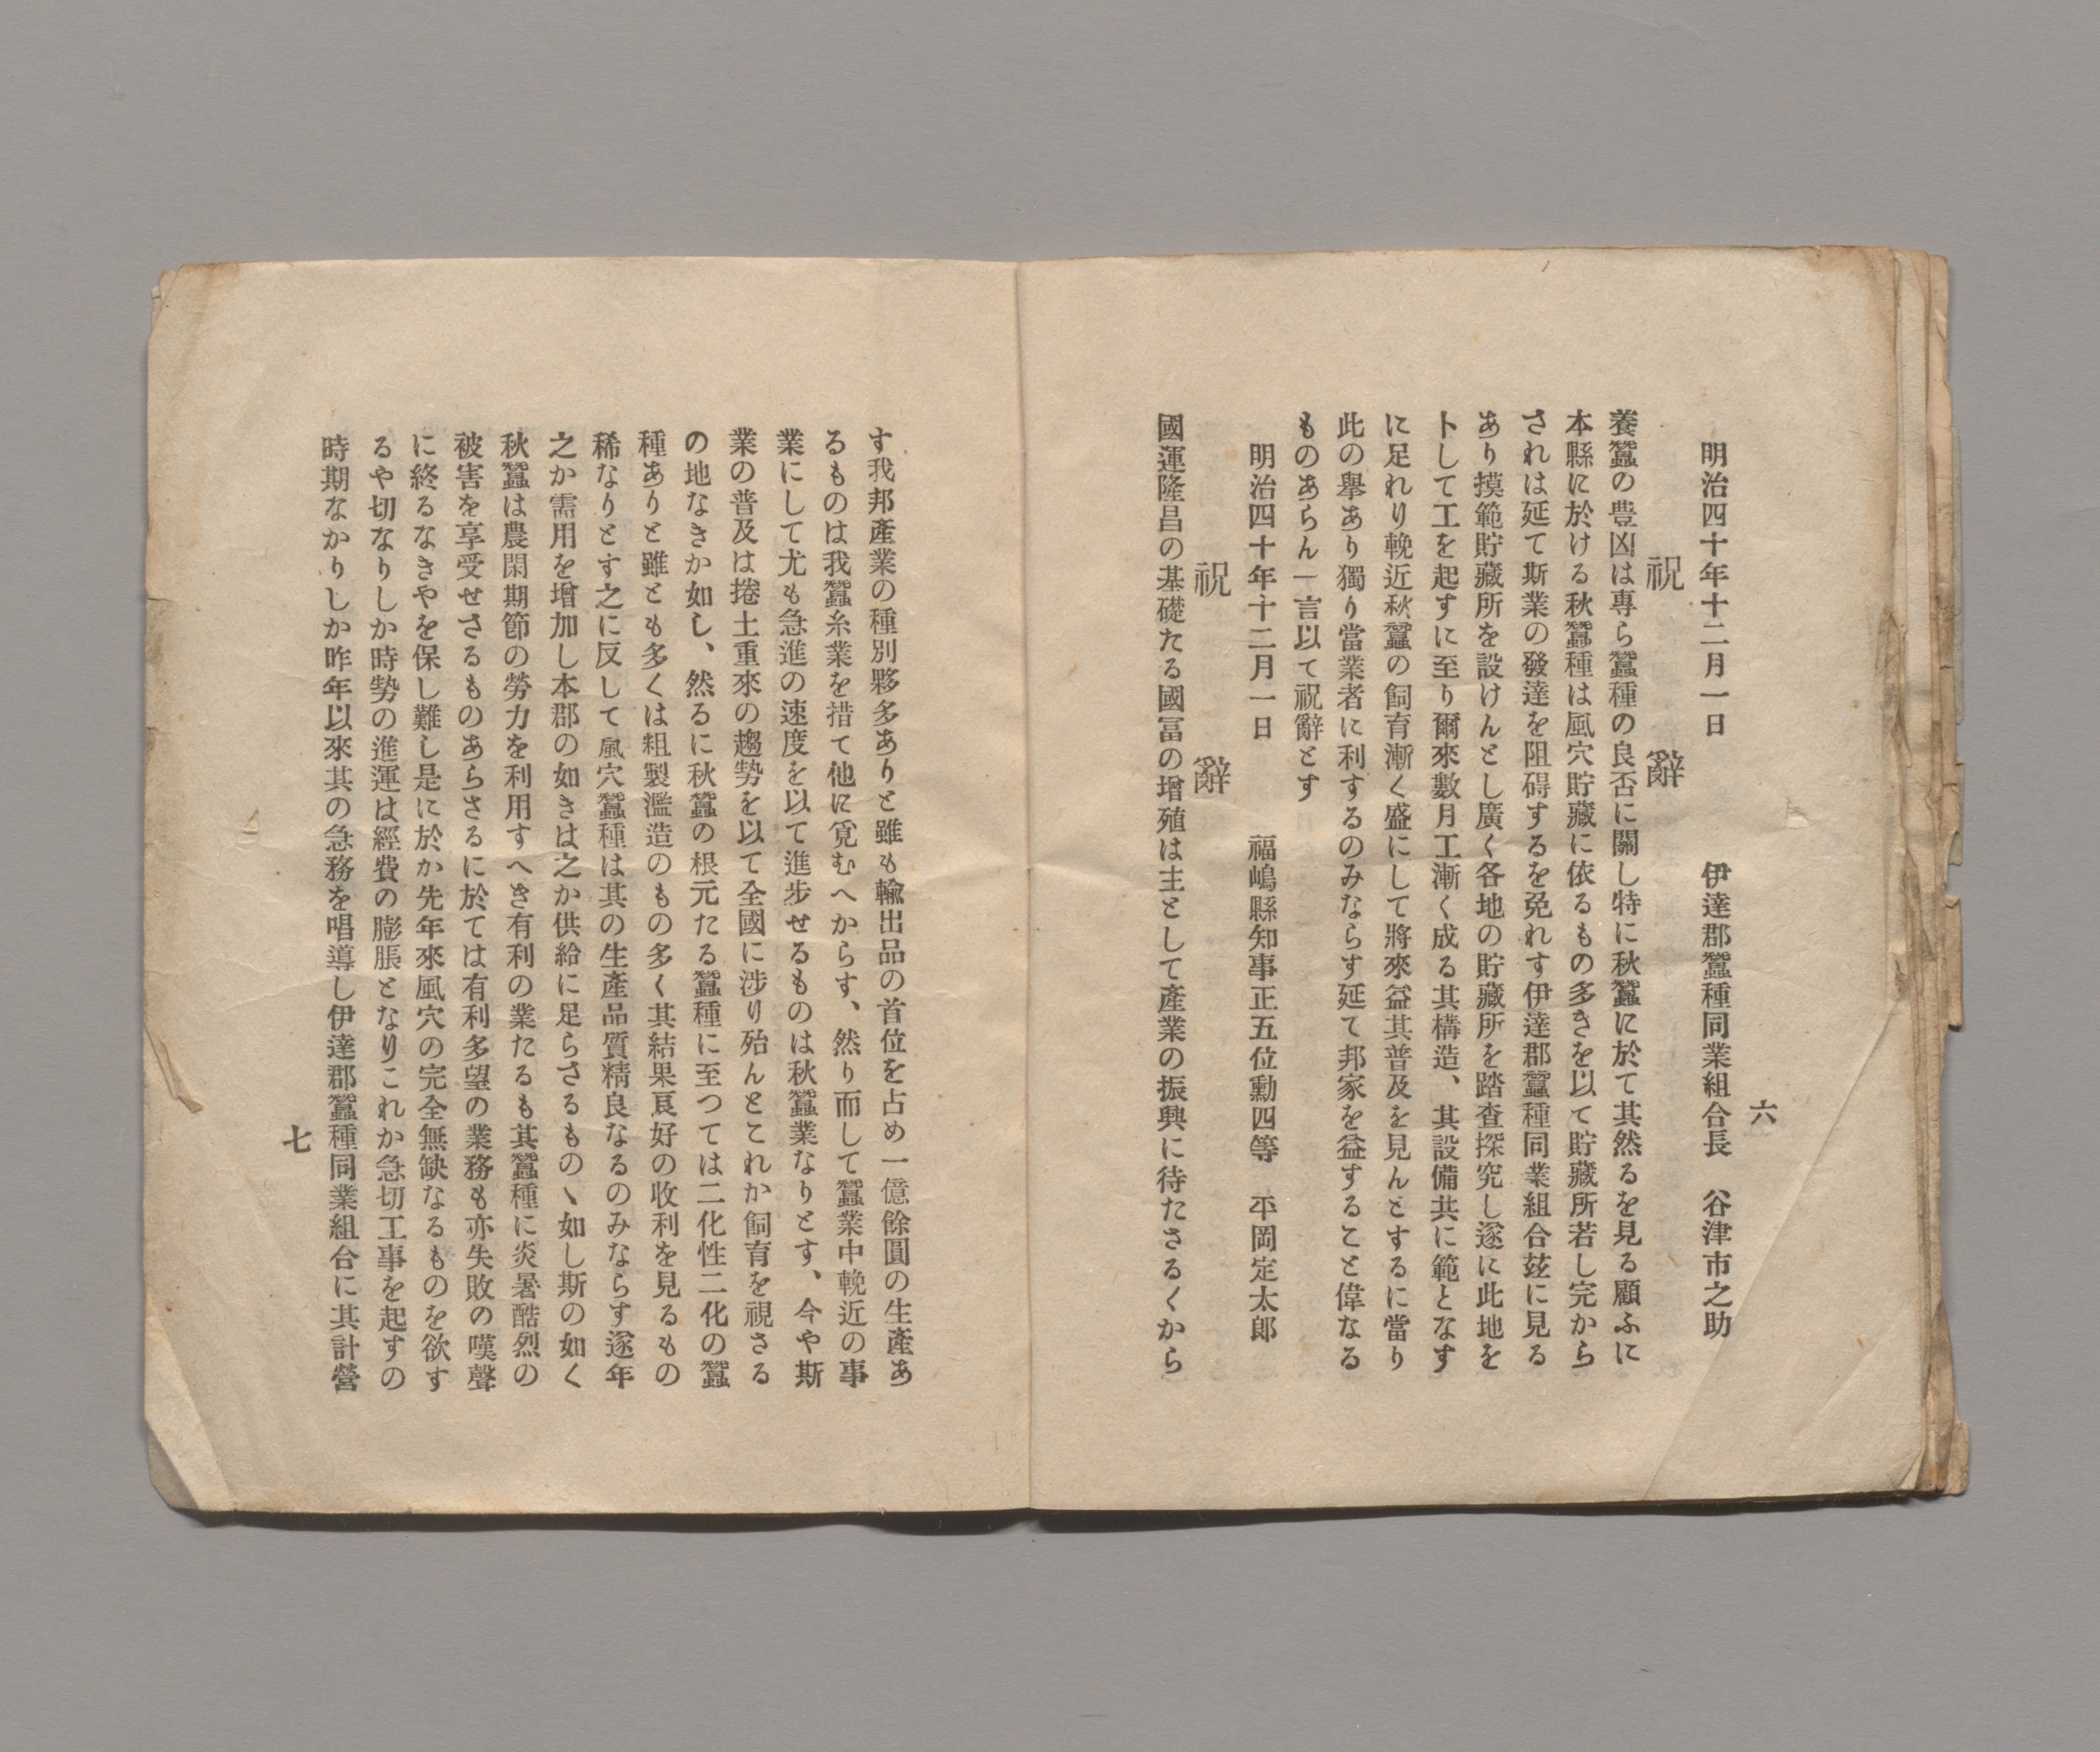 六
明治四十年十二月一日
伊達郡蠶種同業組合長　谷津市之助
祝辭
養蠶の豊凶は專ら蠶種の良否に關し特に秋蠶に於て其然るを見る顧ふに
本縣に於ける秋蠶種は風穴貯藏に依るもの多きを以て貯藏所若し完から
されは延て斯業の發達を阻碍するを免れす伊達郡蠶種同業組合玆に見る
あり摸範貯藏所を設けんとし廣く各地の貯藏所を踏査探究し遂に此地を
卜して工を起すに至り爾來數月工漸く成る其構造、其設備共に範となす
に足れり輓近秋蠶の飼育漸く盛にして將來益其普及を見んとするに當り
此の擧あり獨り當業者に利するのみならす延て邦家を益すること偉なる
ものあらん一言以て祝辭とす
明治四十年十二月一日
福嶋縣知事正五位勳四等　平岡定太郎
祝辭
國運隆昌の基礎たる國冨の增殖は主として產業の振興に待たさるくから
す我邦產業の種別夥多ありと雖も輸出品の首位を占め一億餘圓の生產あ
るものは我蠶糸業を措て他に覓むへからす、然り而して蠶業中輓近の事
業にして尤も急進の速度を以て進步せるものは秋蠶業なりとす、今や斯
業の普及は捲土重來の趨勢を以て全國に涉り殆んとこれか飼育を視さる
の地なきか如し、然るに秋蠶の根元たる蠶種に至つては二化性二化の蠶
種ありと雖とも多くは粗製濫造のもの多く其結果良好の收利を見るもの
稀なりとす之に反して風穴蠶種は其の生產品質精良なるのみならす逐年
之か需用を增加し本郡の如きは之か供給に足らさるものゝ如し斯の如く
秋蠶は農閑期節の勞力を利用すへき有利の業たるも其蠶種に炎暑酷烈の
被害を享受せさるものあらさるに於ては有利多望の業務も亦失敗の嘆聲
に終るなきやを保し難し是に於か先年來風穴の完全無缺なるものを欲す
るや切なりしか時勢の進運は經費の膨脹となりこれか急切工事を起すの
時期なかりしか昨年以來其の急務を唱導し伊達郡蠶種同業組合に其計營
七